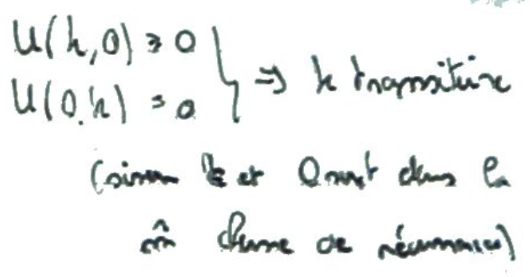 U(k,0) > 0 } ⇒ k transitoire
U(0,k) = 0
(sinon k et 0 sont dans la
m̂ classe de récurrence)